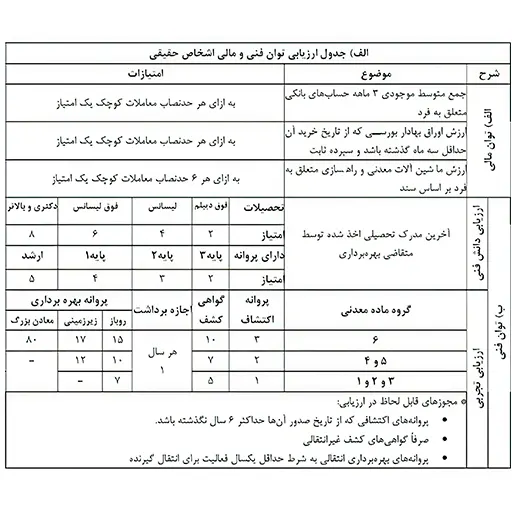 الف) جدول ارزیابی توان فنی و مالی اشخاص حقیقی
شرح موضوع امتیازات
الف) توان مالی
جمع متوسط موجودی ۳ ماهه حساب‌های بانکی متعلق به فرد
به ازای هر حدنصاب معاملات کوچک یک امتیاز
ارزش اوراق بهادار بورسی که از تاریخ خرید آن حداقل سه ماه گذشته باشد و سپرده ثابت
به ازای هر حدنصاب معاملات کوچک یک امتیاز
ارزش ماشین آلات معدنی و راهسازی متعلق به فرد بر اساس سند
به ازای هر ۶ حدنصاب معاملات کوچک یک امتیاز
ب) توان فنی
ارزیابی دانش فنی
آخرین مدرک تحصیلی اخذ شده توسط متقاضی بهره‌برداری
تحصیلات فوق دیپلم لیسانس فوق لیسانس دکتری و بالاتر
امتیاز ۲ ۴ ۶ ۸
دارای پروانه پایه۳ پایه۲ پایه۱ ارشد
امتیاز ۲ ۳ ۴ ۵
ارزیابی تجربی
گروه ماده معدنی پروانه اکتشاف گواهی کشف اجازه برداشت پروانه بهره برداری
روباز زیرزمینی معادن بزرگ
۶ ۳ ۱۰ هر سال ۱ ۱۵ ۱۷ ۸۰
۵ و ۴ ۲ ۷ ۱۰ ۱۲ -
۳ و ۲ و ۱ ۱ ۵ ۷ - -
* مجوزهای قابل لحاظ در ارزیابی:
• پروانه‌های اکتشافی که از تاریخ صدور آن‌ها حداکثر ۶ سال نگذشته باشد.
• صرفاً گواهی‌های کشف غیرانتقالی
• پروانه‌های بهره‌برداری انتقالی به شرط حداقل یکسال فعالیت برای انتقال گیرنده